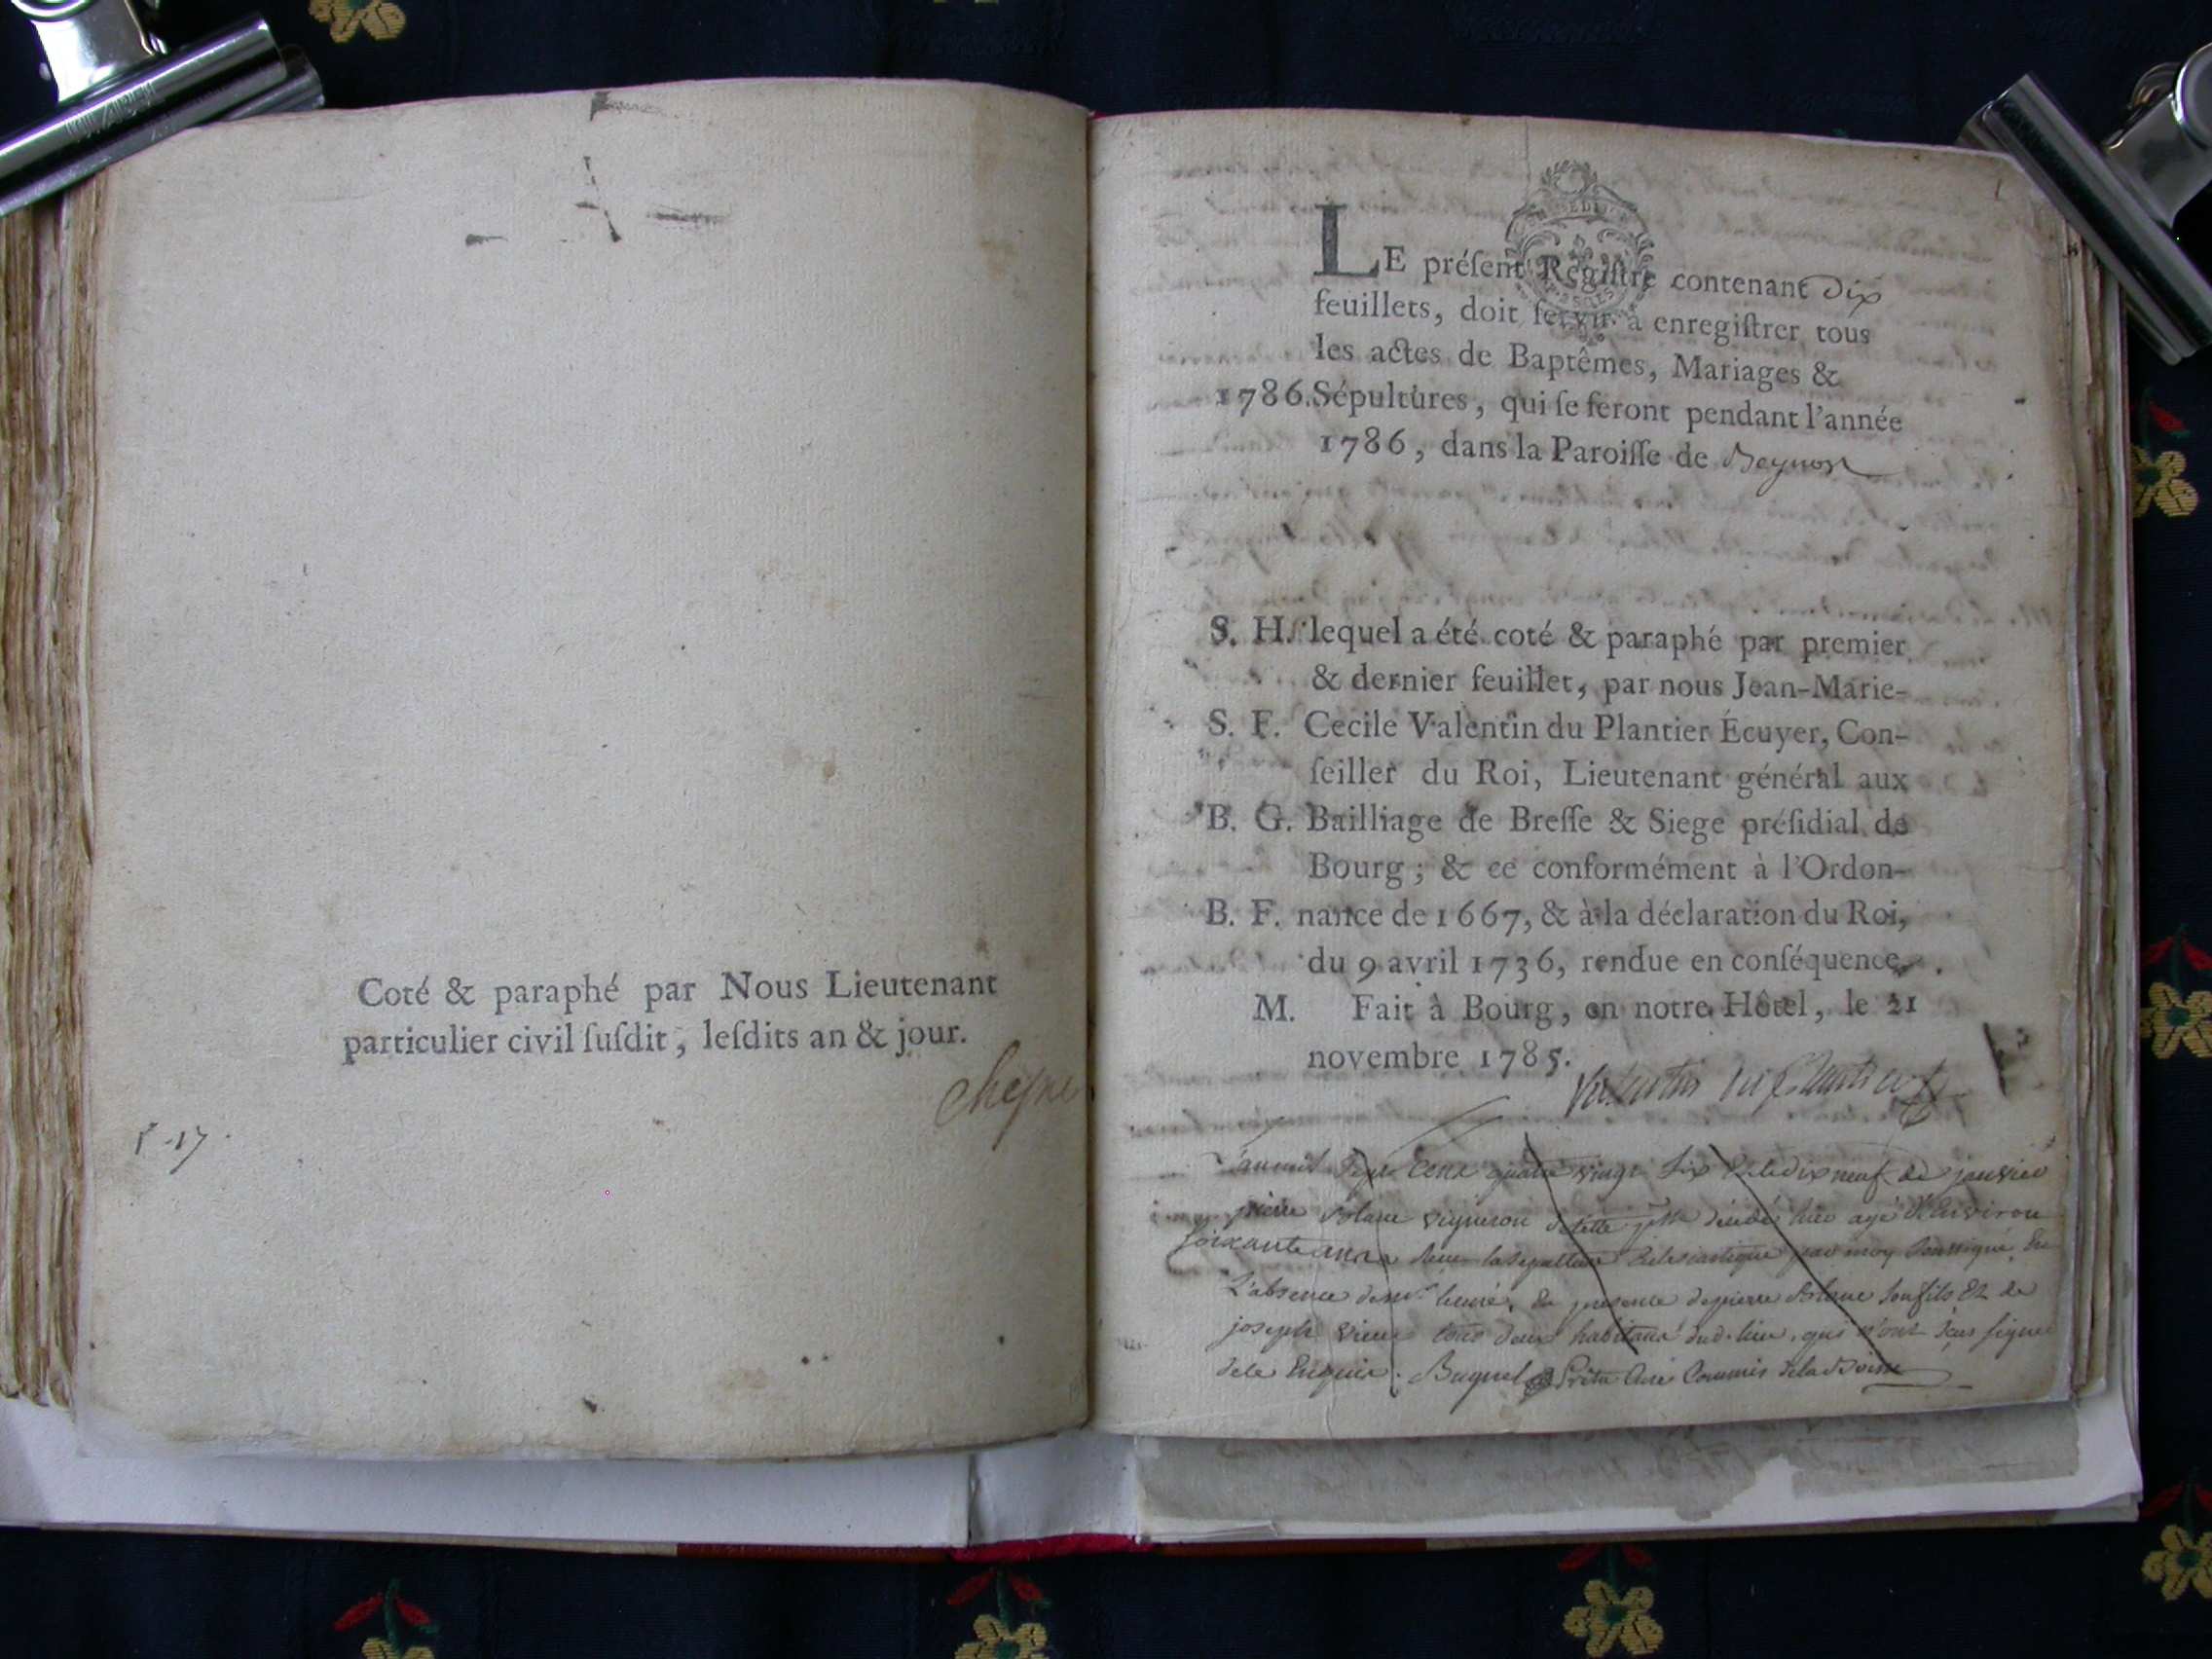 Coté & paraphé par Nous Lieutenant
particulier civil ſuſdit, leſdits an & jour.
LE préſent Regiſtre contenant dix
feuillets, doit ſervir à enregiſtrer tous
les actes de Baptêmes, Mariages &
1786. Sépultures, qui ſe feront pendant l'année
1786, dans la Paroiſſe de Beynost
S. H. lequel a été coté & paraphé par premier
& dernier feuillet, par nous Jean-Marie-
S. F. Cecile Valentin du Plantier Écuyer, Con-
ſeiller du Roi, Lieutenant général aux
B. G. Bailliage de Breſſe & Siege préſidial de
Bourg ; & ce conformément à l'Ordon-
B. F. nance de 1667, & à la déclaration du Roi,
du 9 avril 1736, rendue en conſéquence.
M. Fait à Bourg, en notre Hôtel, le 21
novembre 1785.
Valentin du Plantier
L'an mil sept cent quatre vingt six & le dix neuf de janvier
pierre vigneron de cette décédé hier agé d'Environ
soixante ans a Reçu la sepulture Eclesiastique par moy soussigné, En
L'absence de mr. Curé, En presence de pierre son fils Et de
joseph tous deux habitans dud. lieu, qui n'ont sçus signer
de ce Enquis. Buynel Prêtre